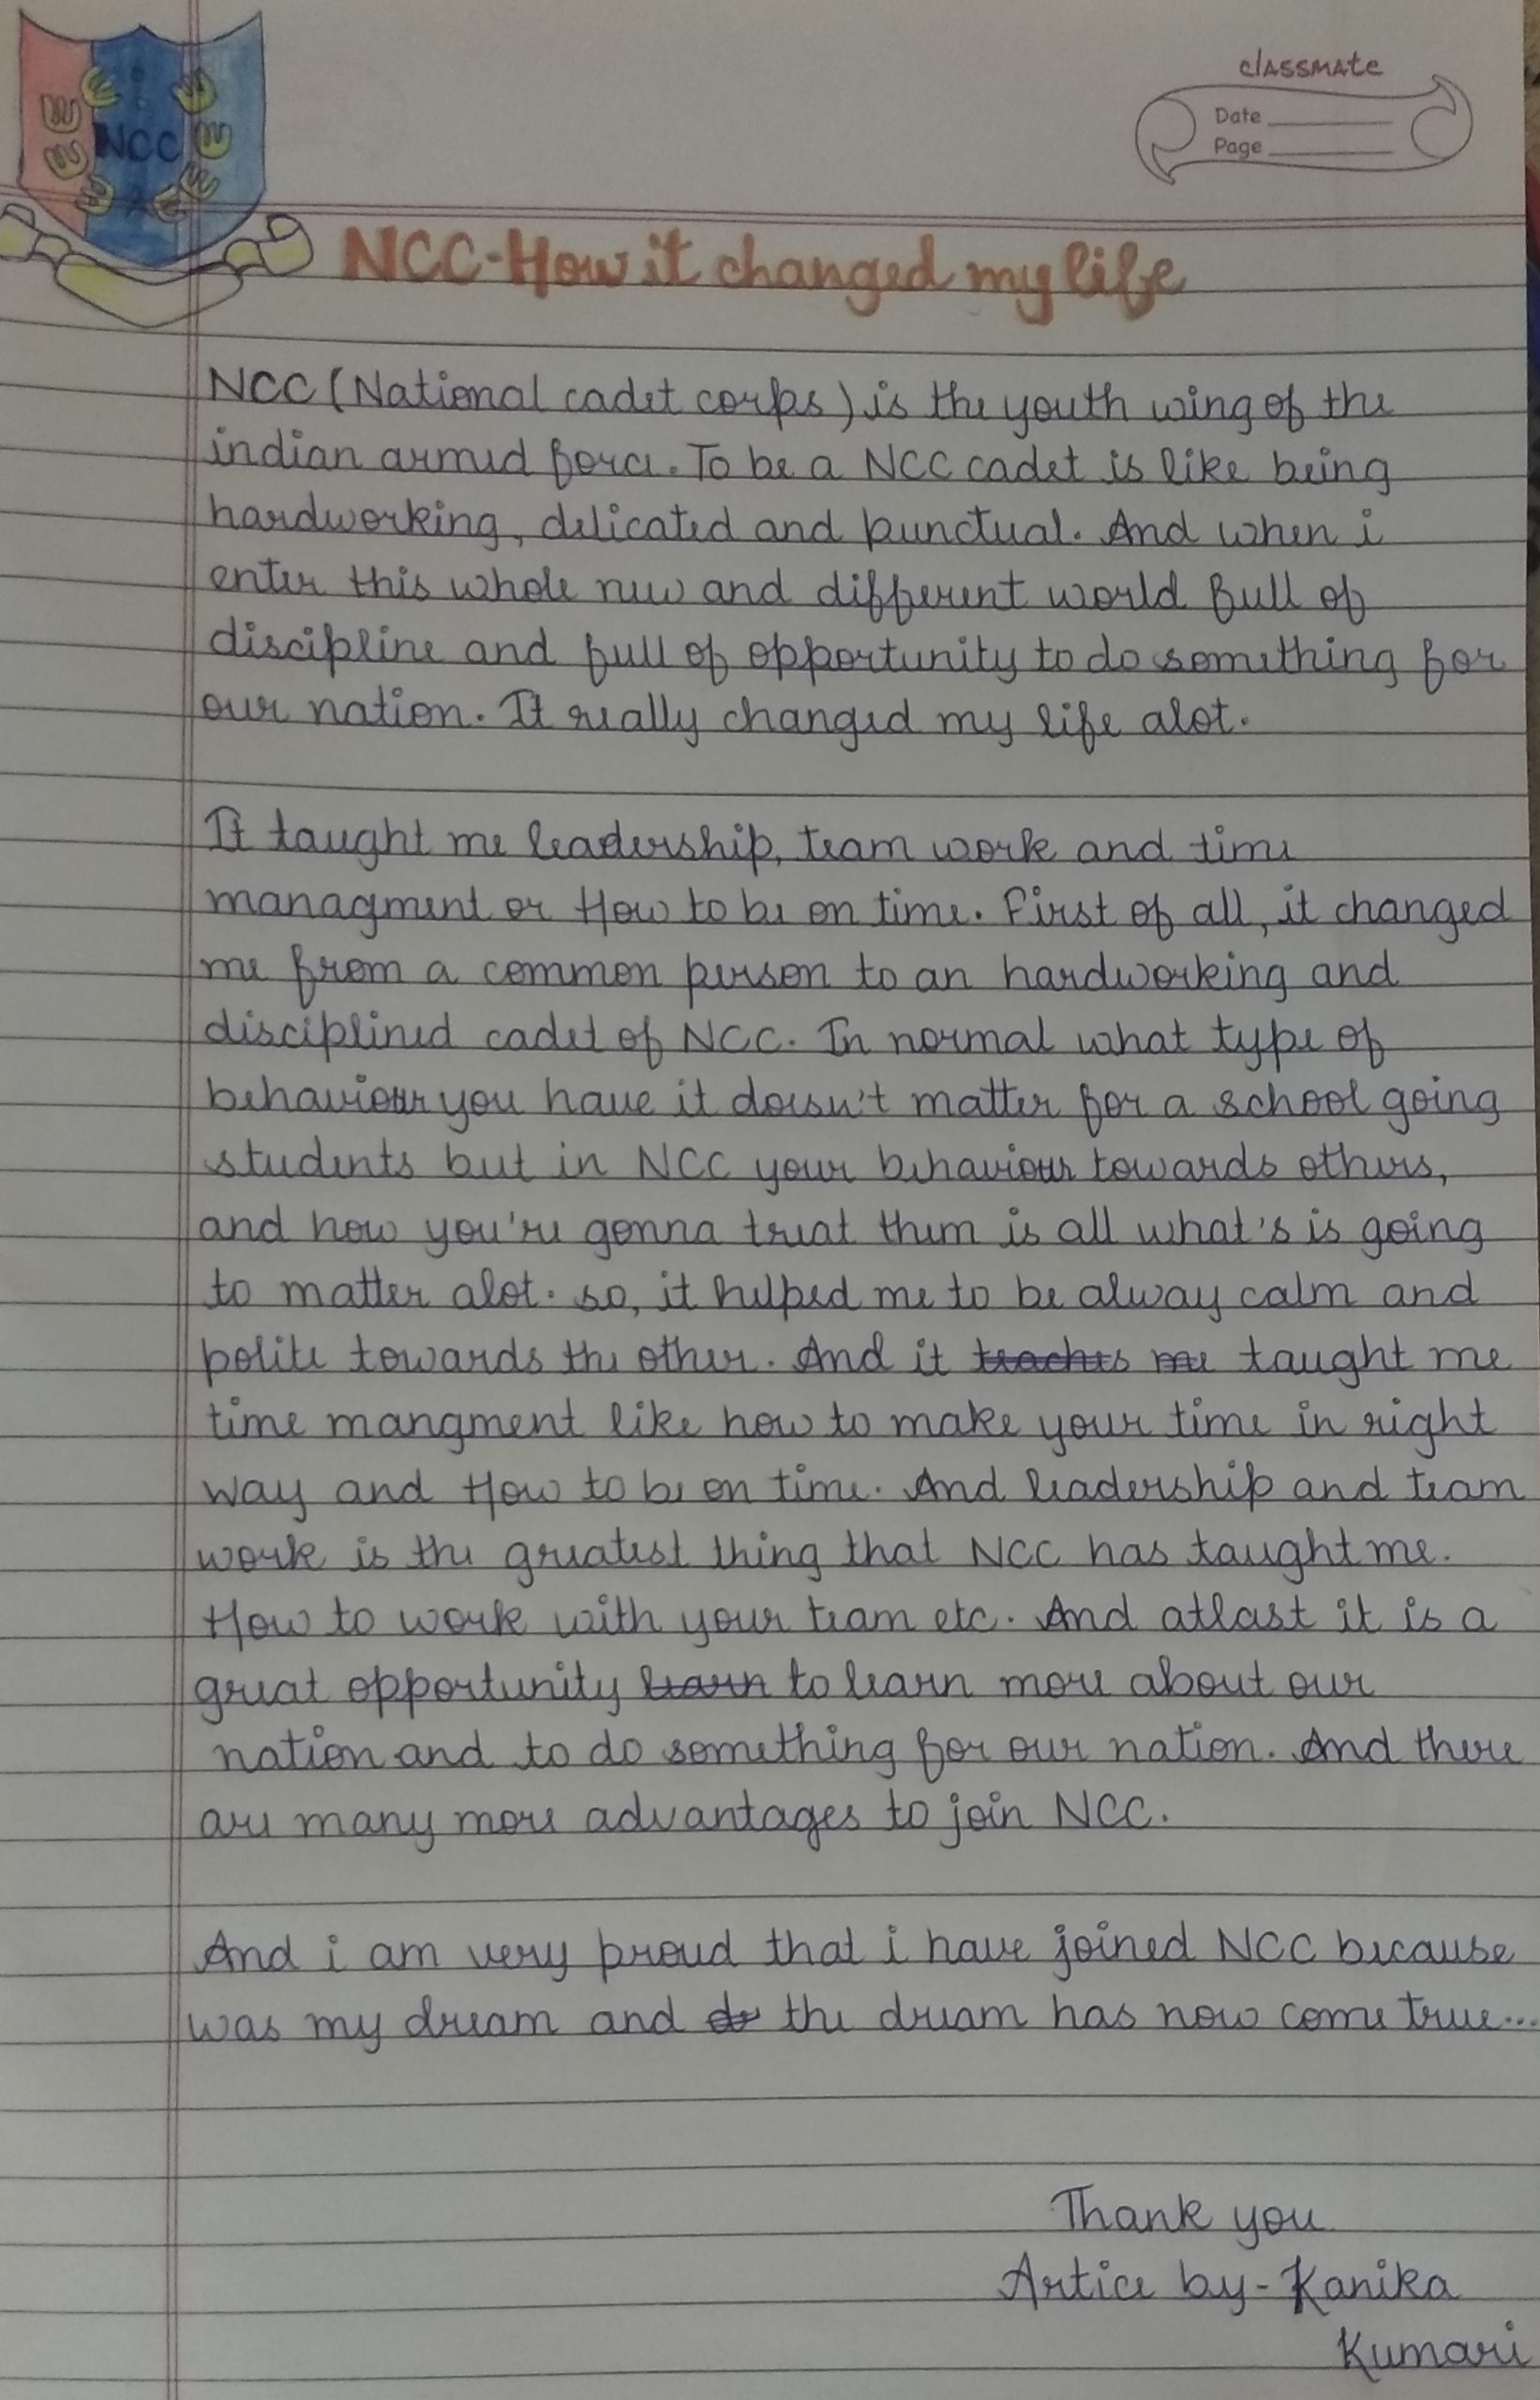 NCC
classmate
Date
Page
NCC-How it changed my life
NCC (National cadet corps) is the youth wing of the
indian armed force. To be a NCC cadet is like being
hardworking, delicated and punctual. And when i
enter this whole new and different world full of
discipline and full of opportunity to do something for
our nation. It really changed my life alot.
It taught me leadership, team work and time
managment or How to be on time. First of all, it changed
me from a common person to an hardworking and
disciplined cadet of NCC. In normal what type of
behaviour you have it doesn't matter for a school going
students but in NCC your behaviour towards others,
and how you're gonna treat them is all what's is going
to matter alot. so, it helped me to be alway calm and
polite towards the other. And it teaches me taught me
time mangment like how to make your time in right
way and How to be on time. And leadership and team
work is the greatest thing that NCC has taught me.
How to work with your team etc. And atlast it is a
great opportunity learn to learn more about our
nation and to do something for our nation. And there
are many more advantages to join NCC.
And i am very proud that i have joined NCC because
was my dream and the dream has now come true...
Thank you
Artice by - Kanika
Kumari